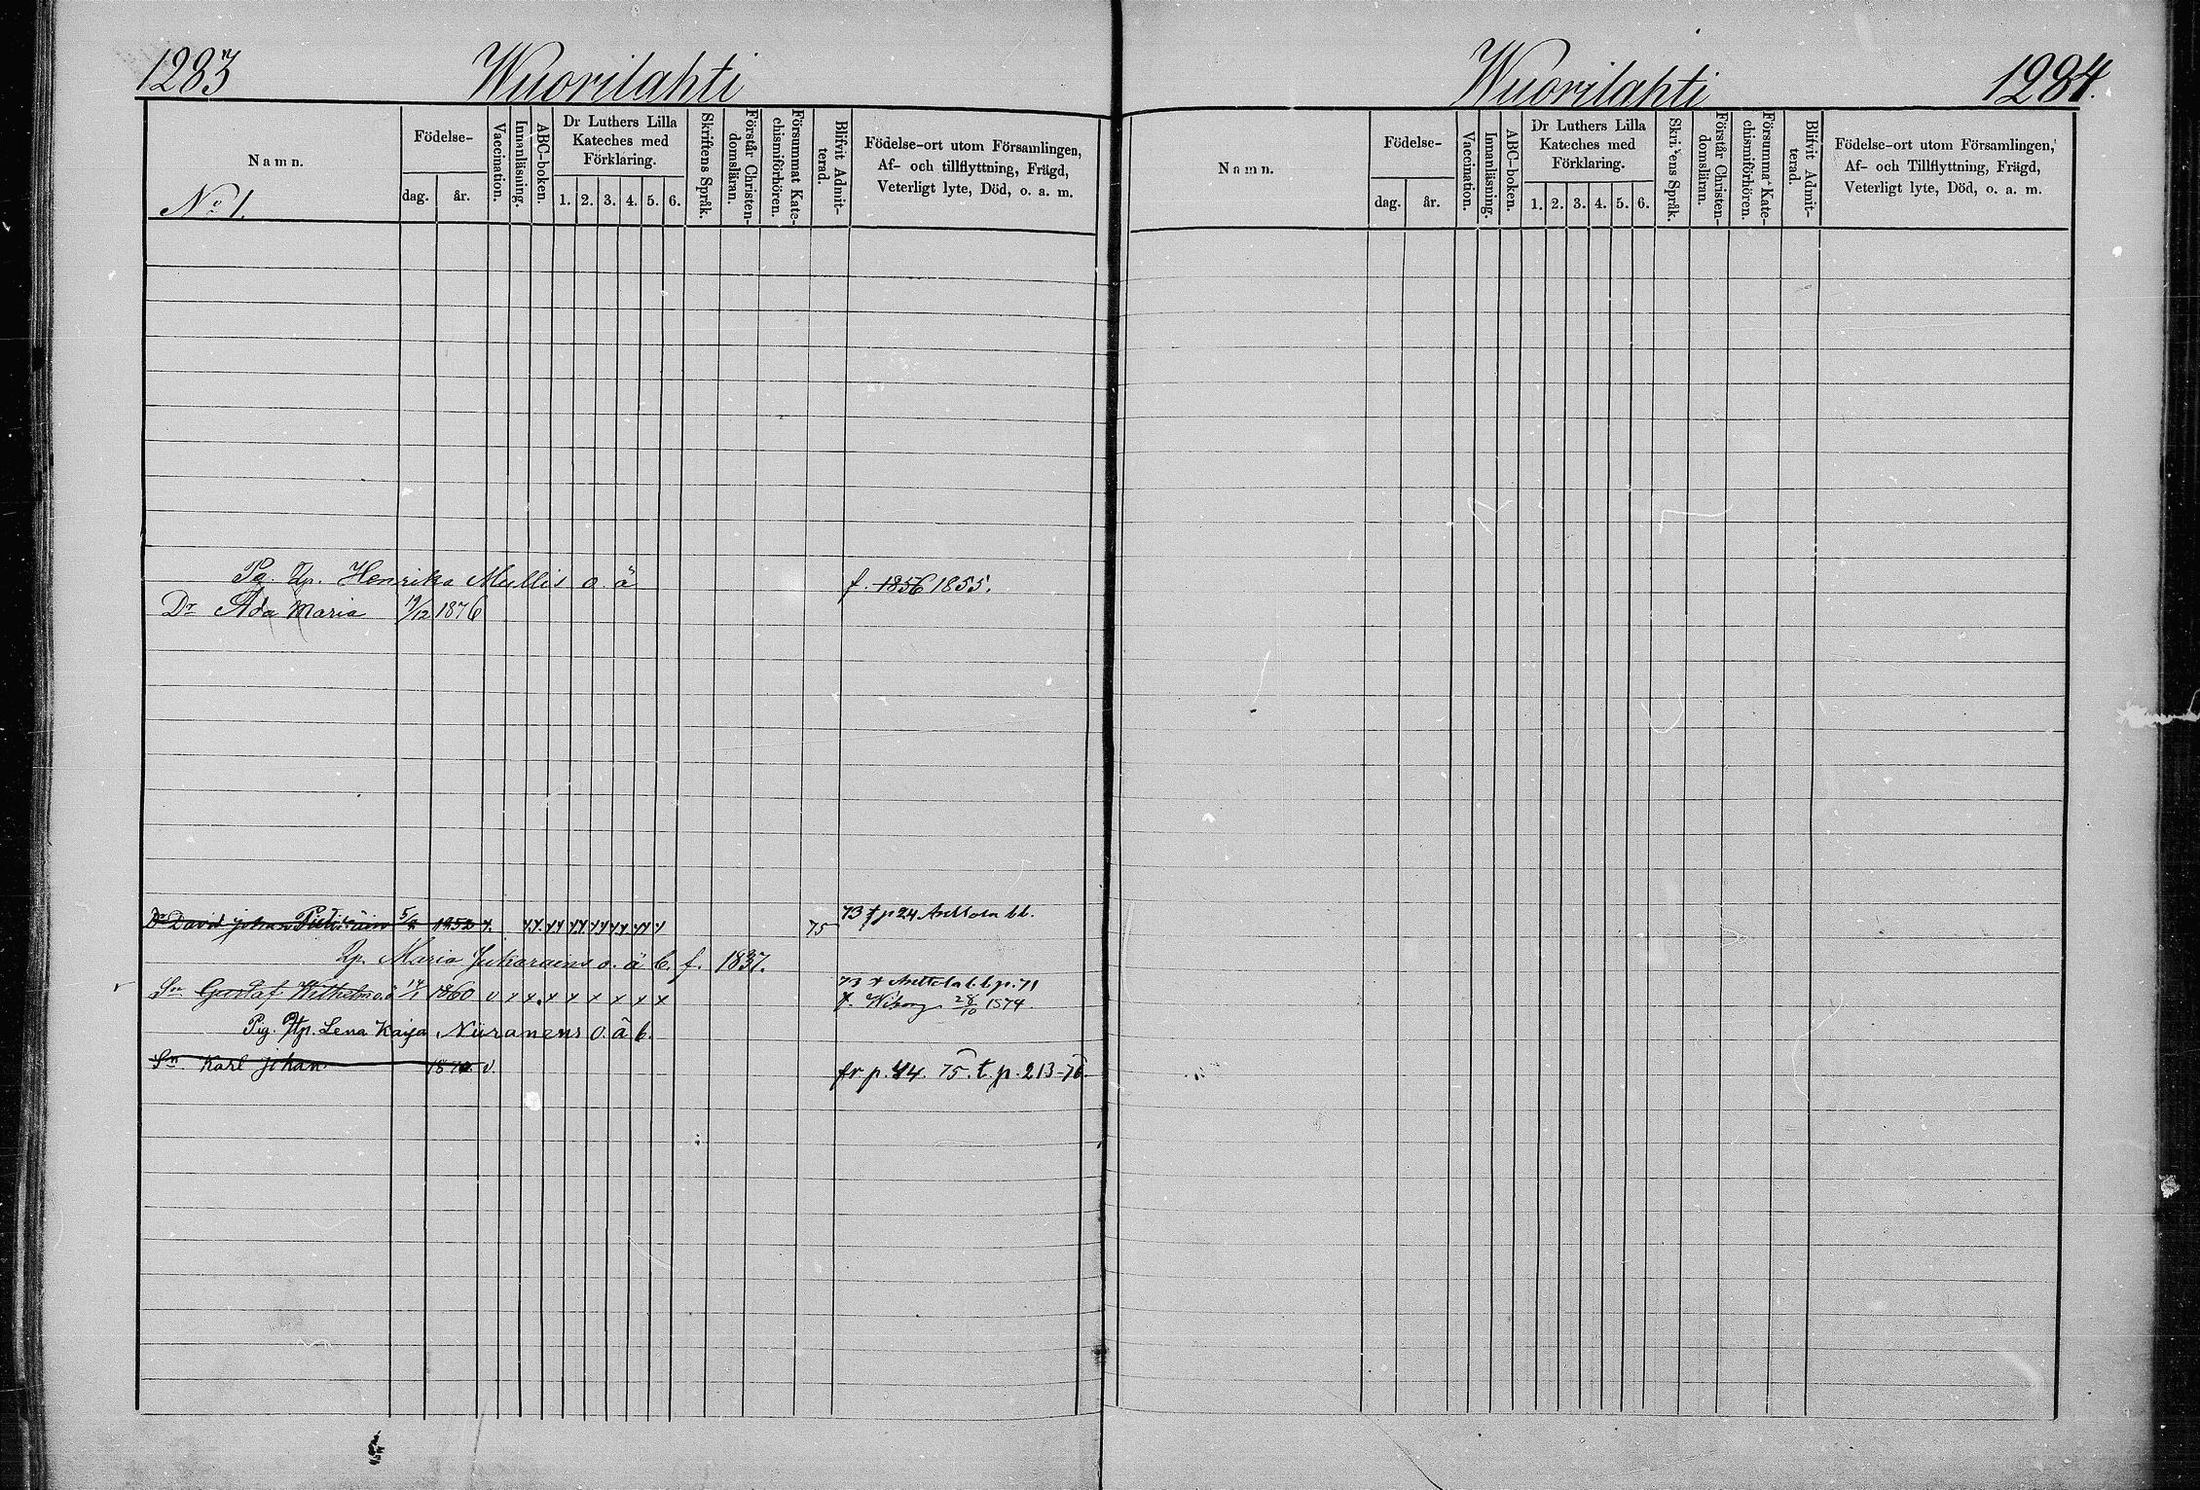 1283 Wuorilahti
Namn.
No 1.
Födelse-
dag. år.
Vaccination.
Innanläsning.
ABC-boken.
Dr Luthers Lilla
Kateches med
Förklaring.
1. 2. 3. 4. 5. 6.
Skriftens Språk.
Förstår Christen-
domsläran.
Försummat Kate-
chismiförhören.
Blifvit Admit-
terad.
Födelse-ort utom Församlingen,
Af- och tillflyttning, Frägd,
Veterligt lyte, Död, o. a. m.
Pg. Henrika Mullis o. ä f. 1856 1855.
Dr Ada Maria 19/12 1876
David Johan 1852 x. 75 73 t p 24 Anttola bb.
Maria Jukarainens o. ä b. f. 1837.
Sn Gustaf Wilhelm 1860 v x x x x x x x x 73 t Anttola b.b. p. 71
Wiborg 28/10 1874
Pig. Lena Kaisa Niiranens o. ä b.
Sn Karl Johan v. fr p. 44. 75. t. p. 213-76.
Wuorilahti 1284.
Namn.
Födelse-
dag. år.
Vaccination.
Innanläsning.
ABC-boken.
Dr Luthers Lilla
Kateches med
Förklaring.
1. 2. 3. 4. 5. 6.
Skriftens Språk.
Förstår Christen-
domsläran.
Försummat Kate-
chismiförhören.
Blifvit Admit-
terad.
Födelse-ort utom Församlingen,
Af- och Tillflyttning, Frägd,
Veterligt lyte, Död, o. a. m.